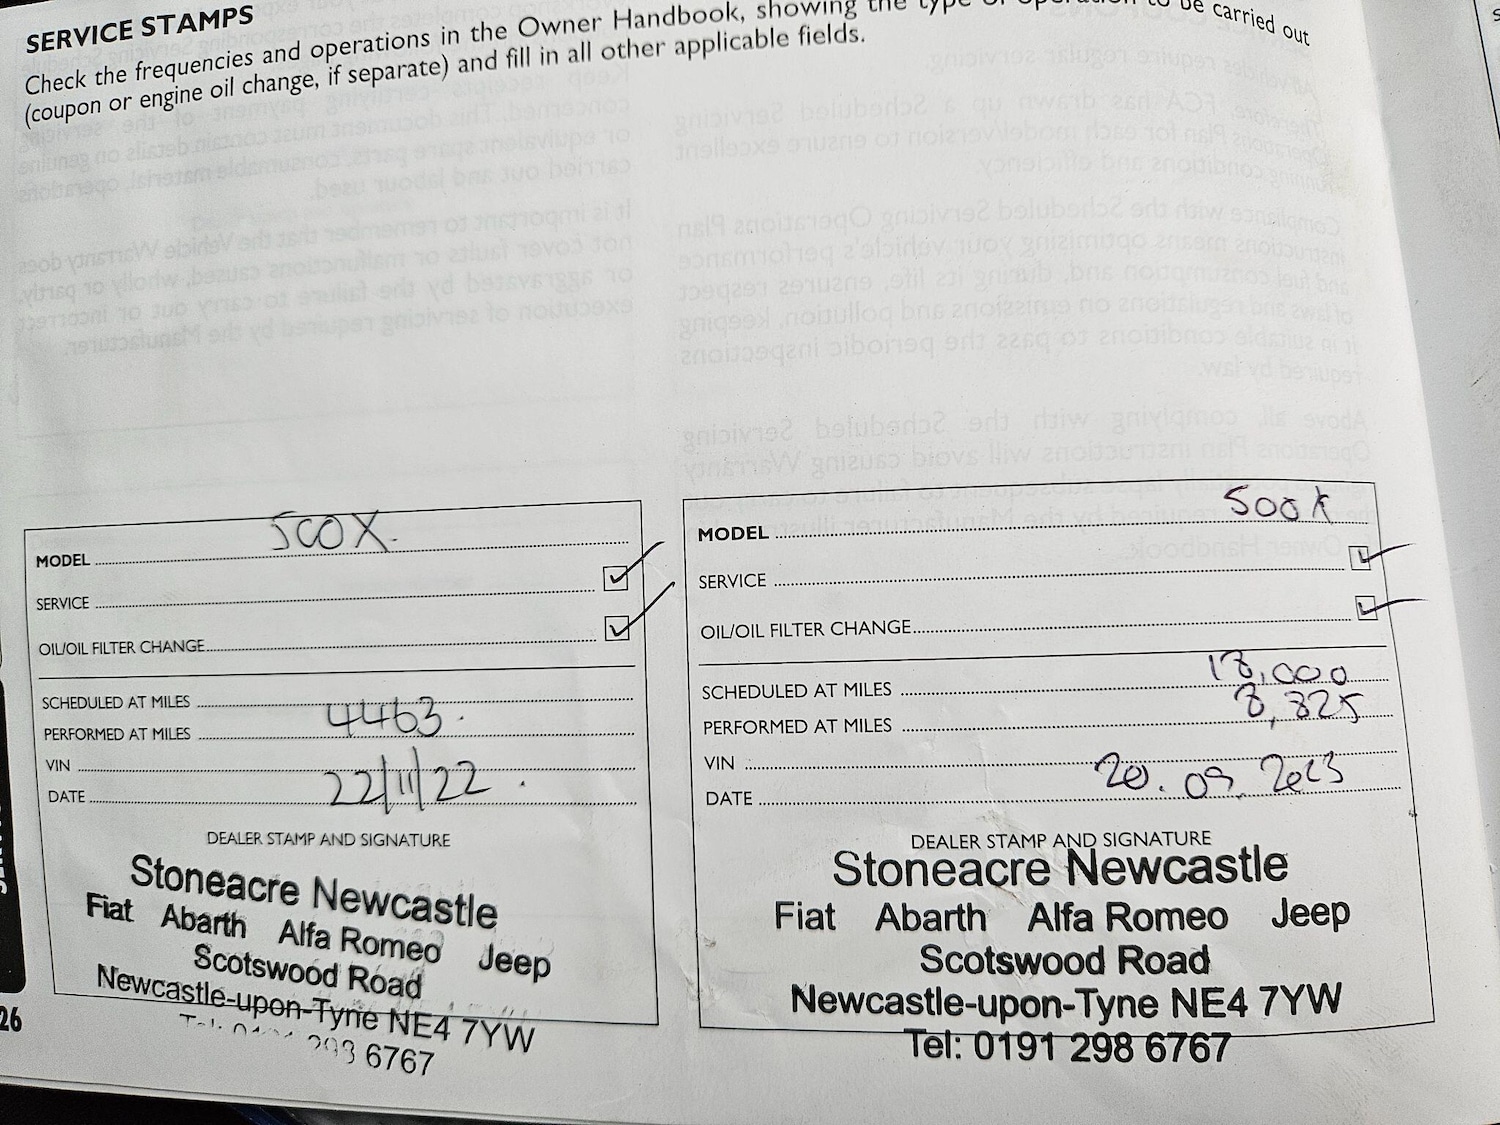 SERVICE STAMPS
Check the frequencies and operations in the Owner Handbook, showing the type of operation to be carried out
(coupon or engine oil change, if separate) and fill in all other applicable fields.
MODEL 500X.
SERVICE ✓
OIL/OIL FILTER CHANGE ✓
SCHEDULED AT MILES
PERFORMED AT MILES 4463.
VIN
DATE 22/11/22.
DEALER STAMP AND SIGNATURE
Stoneacre Newcastle
Fiat Abarth Alfa Romeo Jeep
Scotswood Road
Newcastle-upon-Tyne NE4 7YW
298 6767
MODEL 500X
SERVICE ✓
OIL/OIL FILTER CHANGE ✓
SCHEDULED AT MILES 18,000
PERFORMED AT MILES 8,825
VIN
DATE 20.09.2023
DEALER STAMP AND SIGNATURE
Stoneacre Newcastle
Fiat Abarth Alfa Romeo Jeep
Scotswood Road
Newcastle-upon-Tyne NE4 7YW
Tel: 0191 298 6767
26